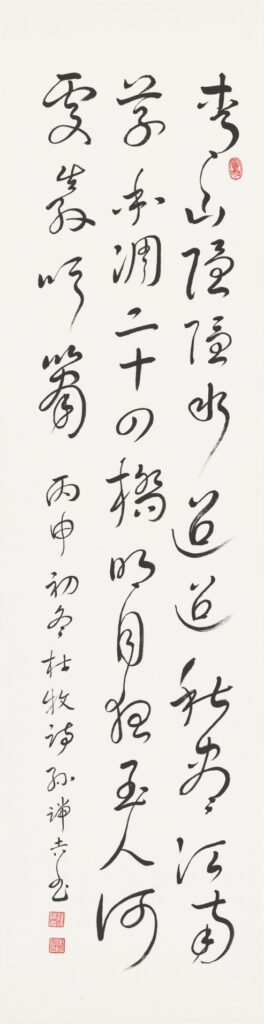 青山隱隱水迢迢秋盡江南
草未凋二十四橋明月夜玉人何
處教吹簫 丙申初冬杜牧詩孫吉書